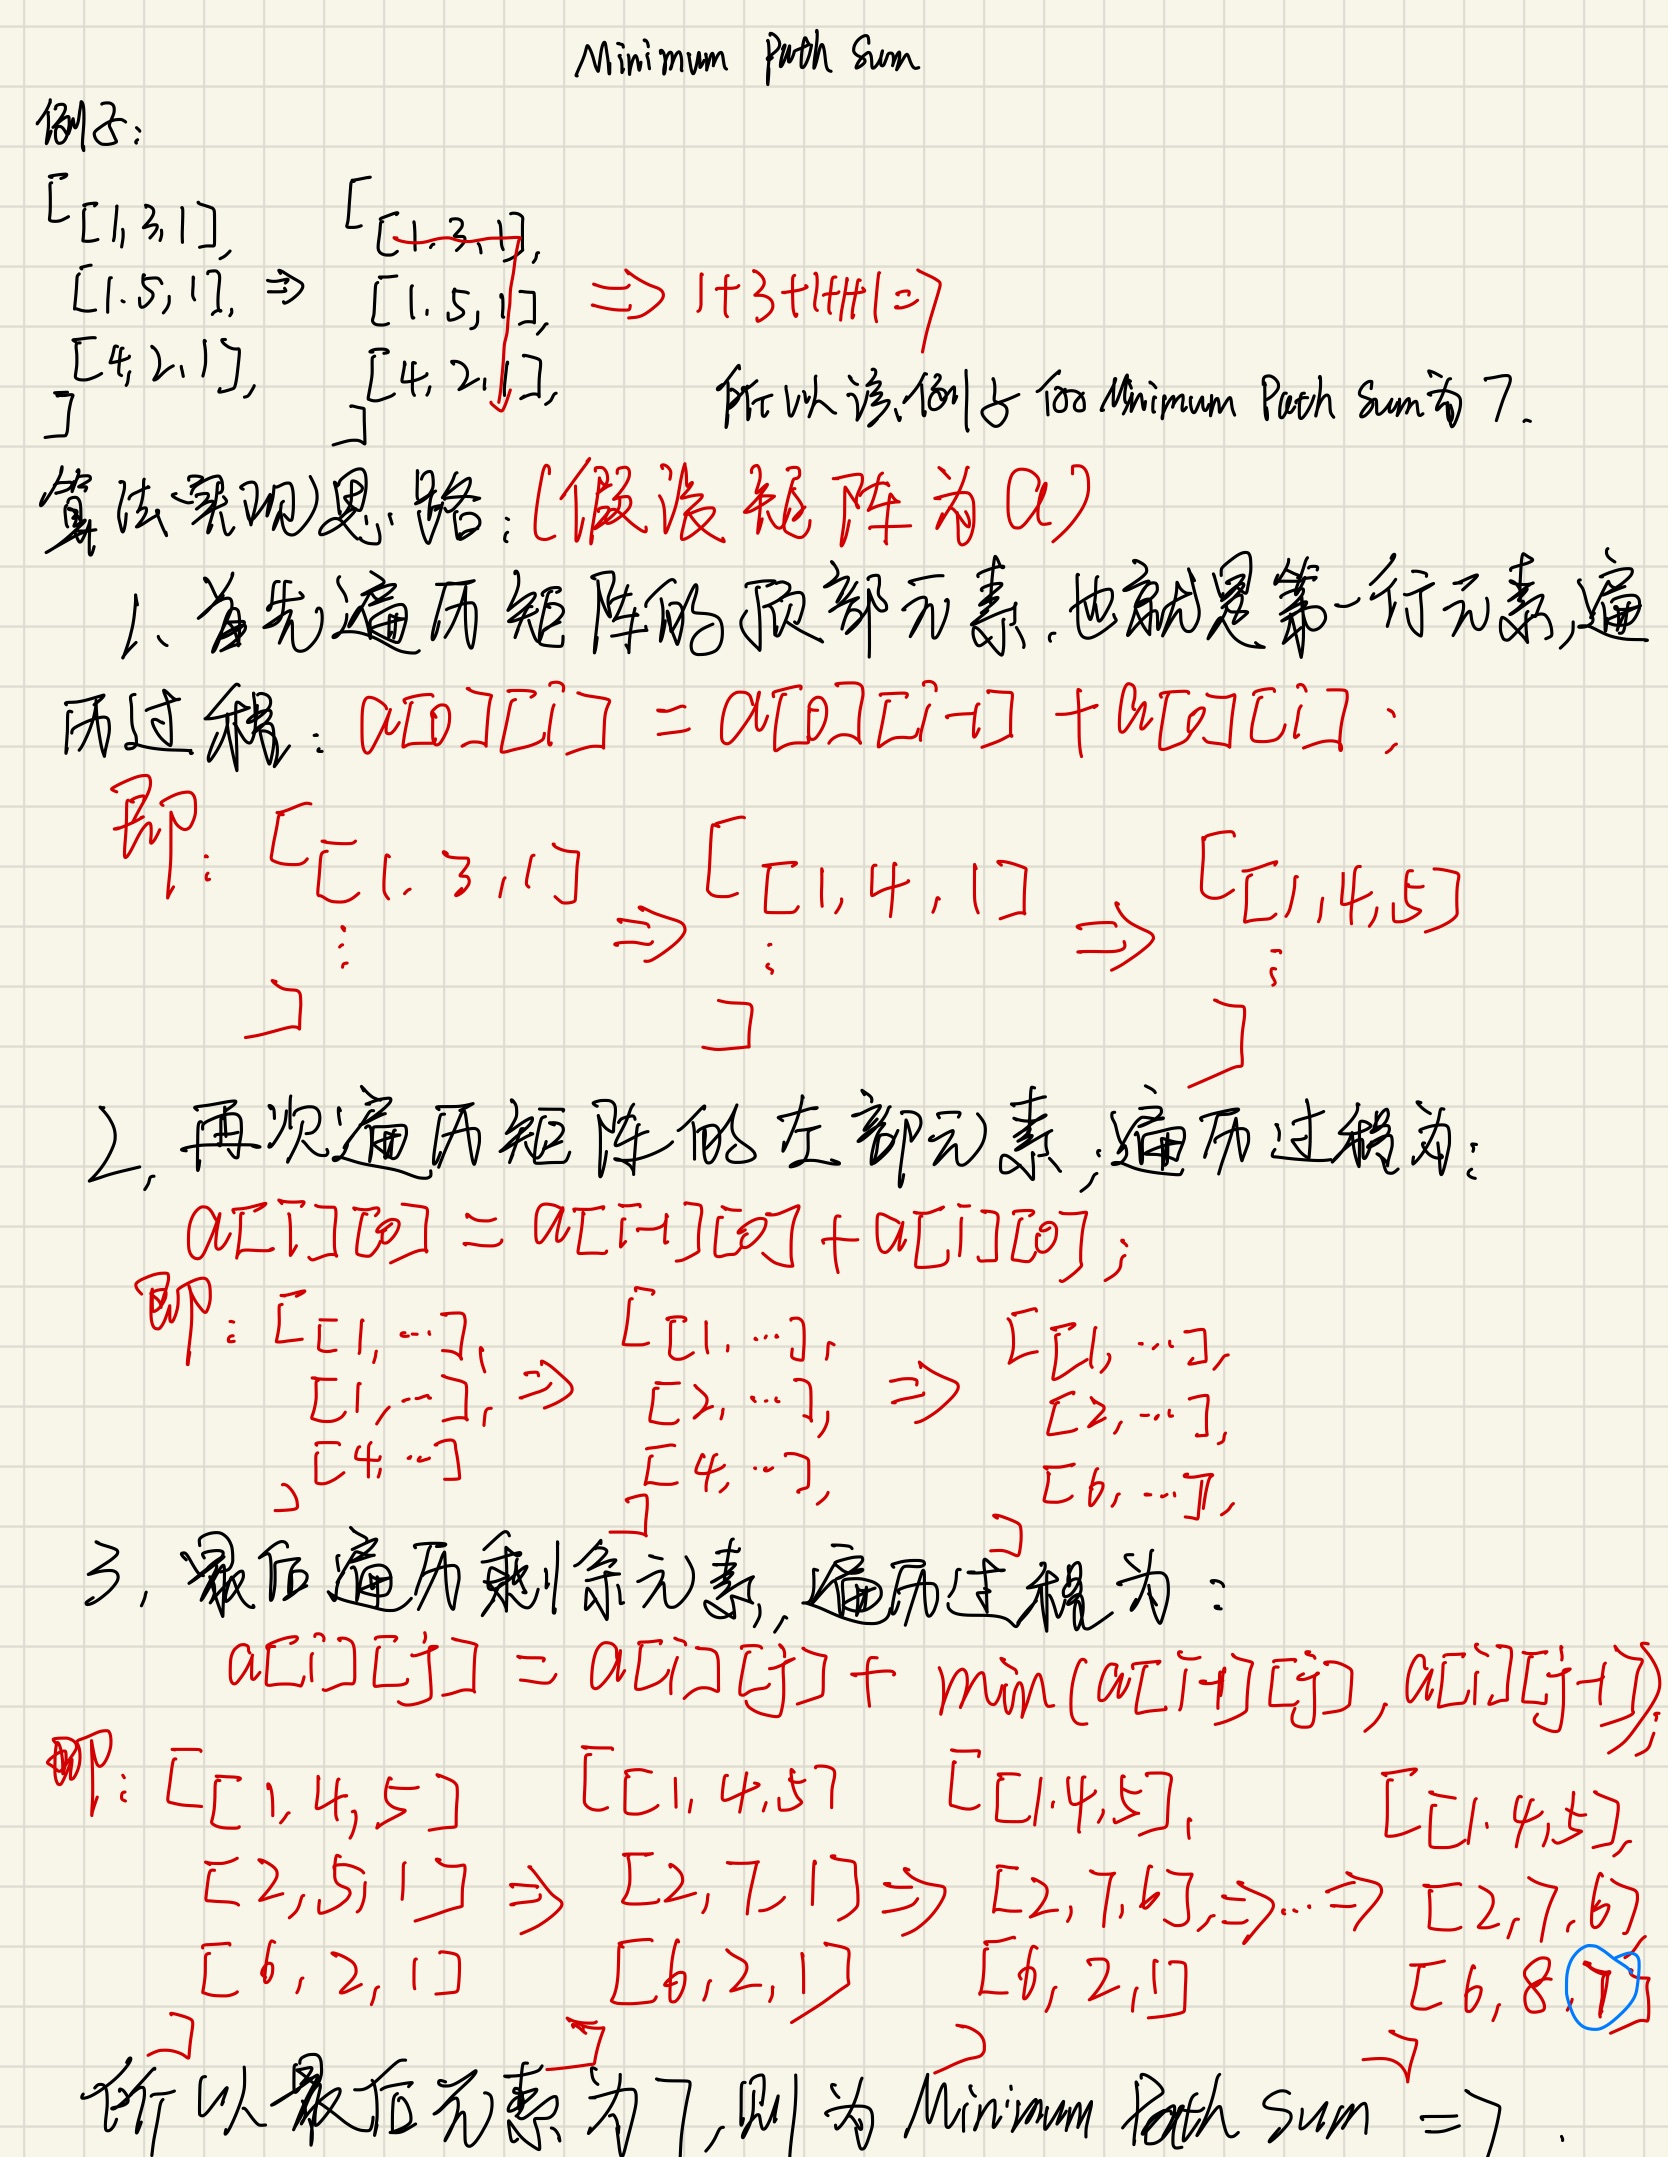 Minimum Path Sum
例子:
[ [
[1,3,1], [1.3,1],
[1.5,1], ⇒ [1.5,1], ⇒ 1+3+1+1+1=7
[4,2,1], [4,2,1],
] ]
所以该例子的Minimum Path Sum为7.
算法实现思路:(假设矩阵为a)
1、首先遍历矩阵的顶部元素.也就是第一行元素,遍
历过程: a[0][i] = a[0][i-1] + a[0][i];
即: [ [ [
[1.3,1] ⇒ [1,4,1] ⇒ [1,4,5]
⋮ ⋮ ⋮
] ] ]
2,再次遍历矩阵的左部元素,遍历过程为:
a[i][0] = a[i-1][0]+a[i][0];
即: [[1,…], [[1,…], [[1,…],
[1,…], ⇒ [2,…], ⇒ [2,…],
[4,…] [4,…], [6,…],
] ] ]
3,最后遍历剩余元素,遍历过程为:
a[i][j] = a[i][j] + min(a[i-1][j],a[i][j-1]);
即: [[1,4,5] [[1,4,5] [[1.4,5], [[1.4,5],
[2,5,1] ⇒ [2,7,1] ⇒ [2,7,6], ⇒…⇒ [2,7,6]
[6,2,1] [6,2,1] [6,2,1] [6,8,7]
] ] ] ]
所以最后元素为7,则为Minimum Path Sum =7.